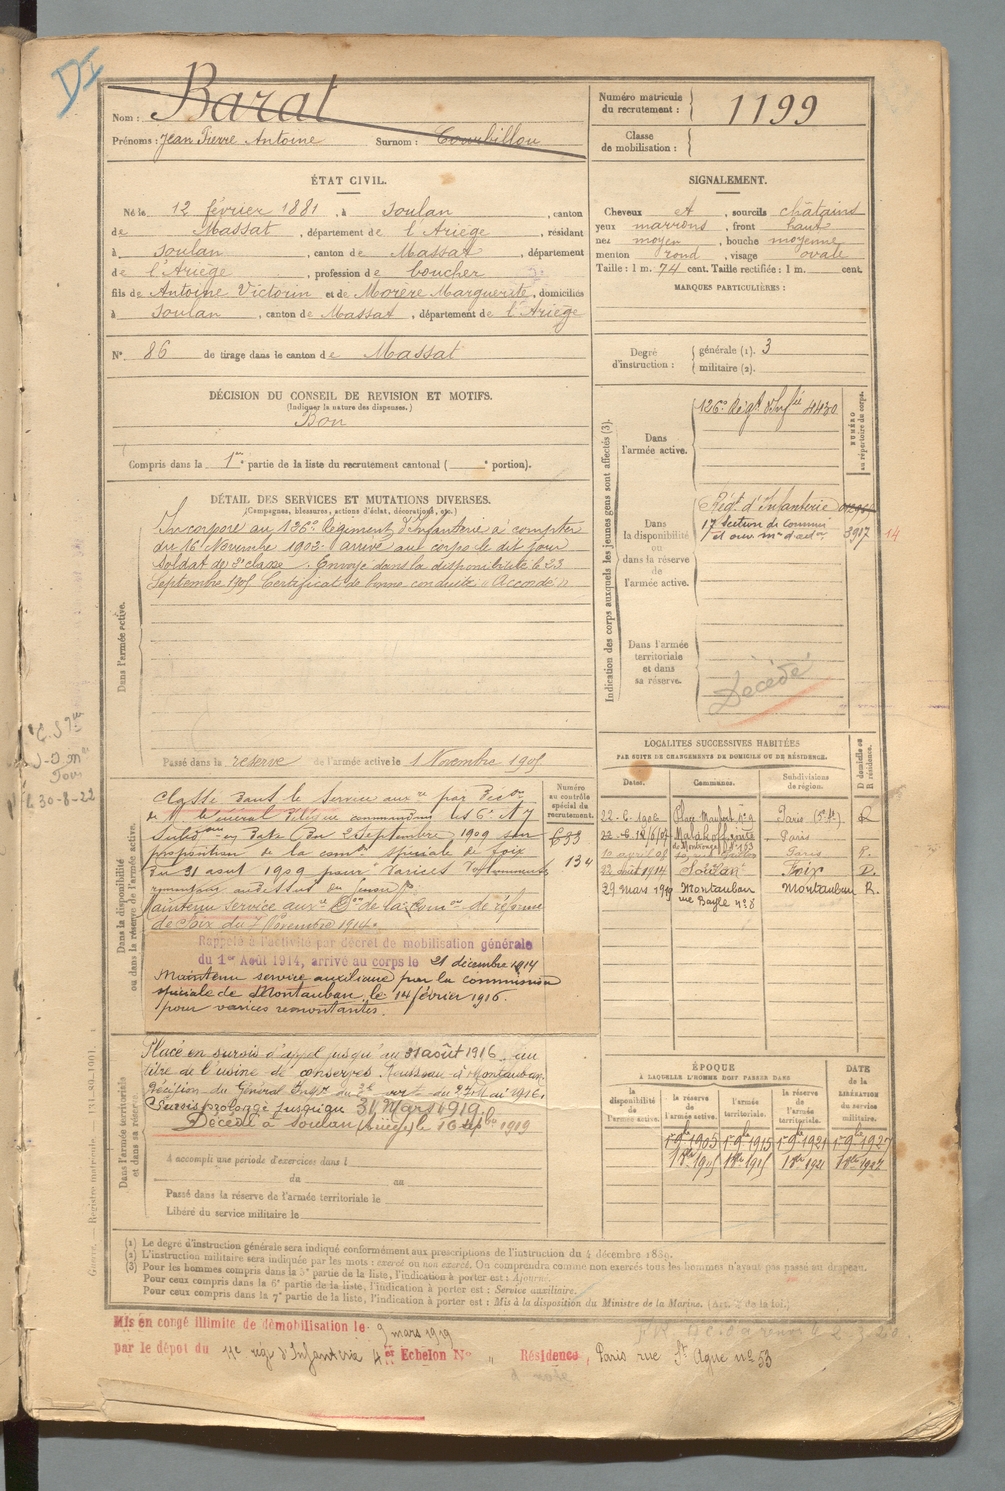 DI
Nom : Barat
Prénoms : Jean Pierre Antoine Surnom : Courbillou
Numéro matricule du recrutement : 1199
Classe de mobilisation :
ÉTAT CIVIL.
Né le 12 février 1881, à Soulan, canton
de Massat, département de l'Ariège, résidant
à Soulan, canton de Massat, département
de l'Ariège, profession de boucher
fils de Antoine Victorin et de Morère Marguerite, domiciliés
à Soulan, canton de Massat, département de l'Ariège
N° 86 de tirage dans le canton de Massat
SIGNALEMENT.
Cheveux et, sourcils châtains
yeux marrons, front haut
nez moyen, bouche moyenne
menton rond, visage ovale
Taille : 1 m. 74 cent. Taille rectifiée : 1 m. cent.
MARQUES PARTICULIÈRES :
Degré d'instruction : générale (1). 3
militaire (2).
DÉCISION DU CONSEIL DE REVISION ET MOTIFS.
(Indiquer la nature des dispenses.)
Bon
Compris dans la 1re partie de la liste du recrutement cantonal ( e portion).
DÉTAIL DES SERVICES ET MUTATIONS DIVERSES.
(Campagnes, blessures, actions d'éclat, décorations, etc.)
Dans l'armée active.
Incorporé au 126e Régiment d'Infanterie à compter
du 16 Novembre 1902. arrivé au corps le dit jour
soldat de 2e classe. Envoyé dans la disponibilité le 23
Septembre 1905 Certificat de bonne conduite "Accordé"
Passé dans la réserve de l'armée active le 1 Novembre 1905
Indication des corps auxquels les jeunes gens sont affectés (3).
NUMÉRO au répertoire du corps.
Dans l'armée active.
126e Régt d'Infie 4430
Dans la disponibilité ou dans la réserve de l'armée active.
Régt. d'Infanterie
17 Section de commis
et ouv. 3917 14
Dans l'armée territoriale et dans sa réserve.
Décédé
LOCALITÉS SUCCESSIVES HABITÉES
PAR SUITE DE CHANGEMENTS DE DOMICILE OU DE RÉSIDENCE.
Dates. Communes. Subdivisions de région. D domicile ou R résidence.
Paris
Paris
Paris R.
22 août 1914 Soulan Foix D.
29 mars 1919 Montauban Montauban R.
rue Bayle n° 8
le 30-8-22
Dans la disponibilité ou dans la réserve de l'armée active.
Numéro au contrôle spécial du recrutement.
633
134
Classé dans le service auxre par
du 2 Septembre 1909 sur
proposition de la comon spéciale de Foix
du 31 août 1909 pour varices volumineuses
remontant au dessus du genou
Maintenu service auxre Don de la comon de réforme
de Foix du 7 Novembre 1914.
Rappelé à l'activité par décret de mobilisation générale
du 1er Août 1914, arrivé au corps le 21 décembre 1914
Maintenu service auxiliaire par la commission
spéciale de Montauban le 14 février 1916.
pour varices remontantes.
Dans l'armée territoriale et dans sa réserve.
Placé en sursis d'appel jusqu'au 31 août 1916 au
titre de l'usine de conserves à Montauban.
Décision du Général 1916.
Sursis prolongé jusqu'au 31 Mars 1919.
Décédé à Soulan (Ariège) le 16 1919
A accompli une période d'exercices dans l
du au
Passé dans la réserve de l'armée territoriale le
Libéré du service militaire le
ÉPOQUE
À LAQUELLE L'HOMME DOIT PASSER DANS
DATE de la LIBÉRATION du service militaire.
la disponibilité de l'armée active. la réserve de l'armée active. l'armée territoriale. la réserve de l'armée territoriale.
1905 1915 1921 1927
(1) Le degré d'instruction générale sera indiqué conformément aux prescriptions de l'instruction du 4 décembre 1889.
(2) L'instruction militaire sera indiquée par les mots : exercé ou non exercé. On comprendra comme non exercés tous les hommes n'ayant pas passé au drapeau.
(3) Pour les hommes compris dans la 5e partie de la liste, l'indication à porter est : Ajourné.
Pour ceux compris dans la 6e partie de la liste, l'indication à porter est : Service auxiliaire.
Pour ceux compris dans la 7e partie de la liste, l'indication à porter est : Mis à la disposition du Ministre de la Marine. (Art. de la loi.)
Mis en congé illimité de démobilisation le 9 mars 1919
par le dépôt du 11e régt d'Infanterie 4er Echelon N° " Résidence, Paris rue St n° 53
Guerre. — Registre matricule.